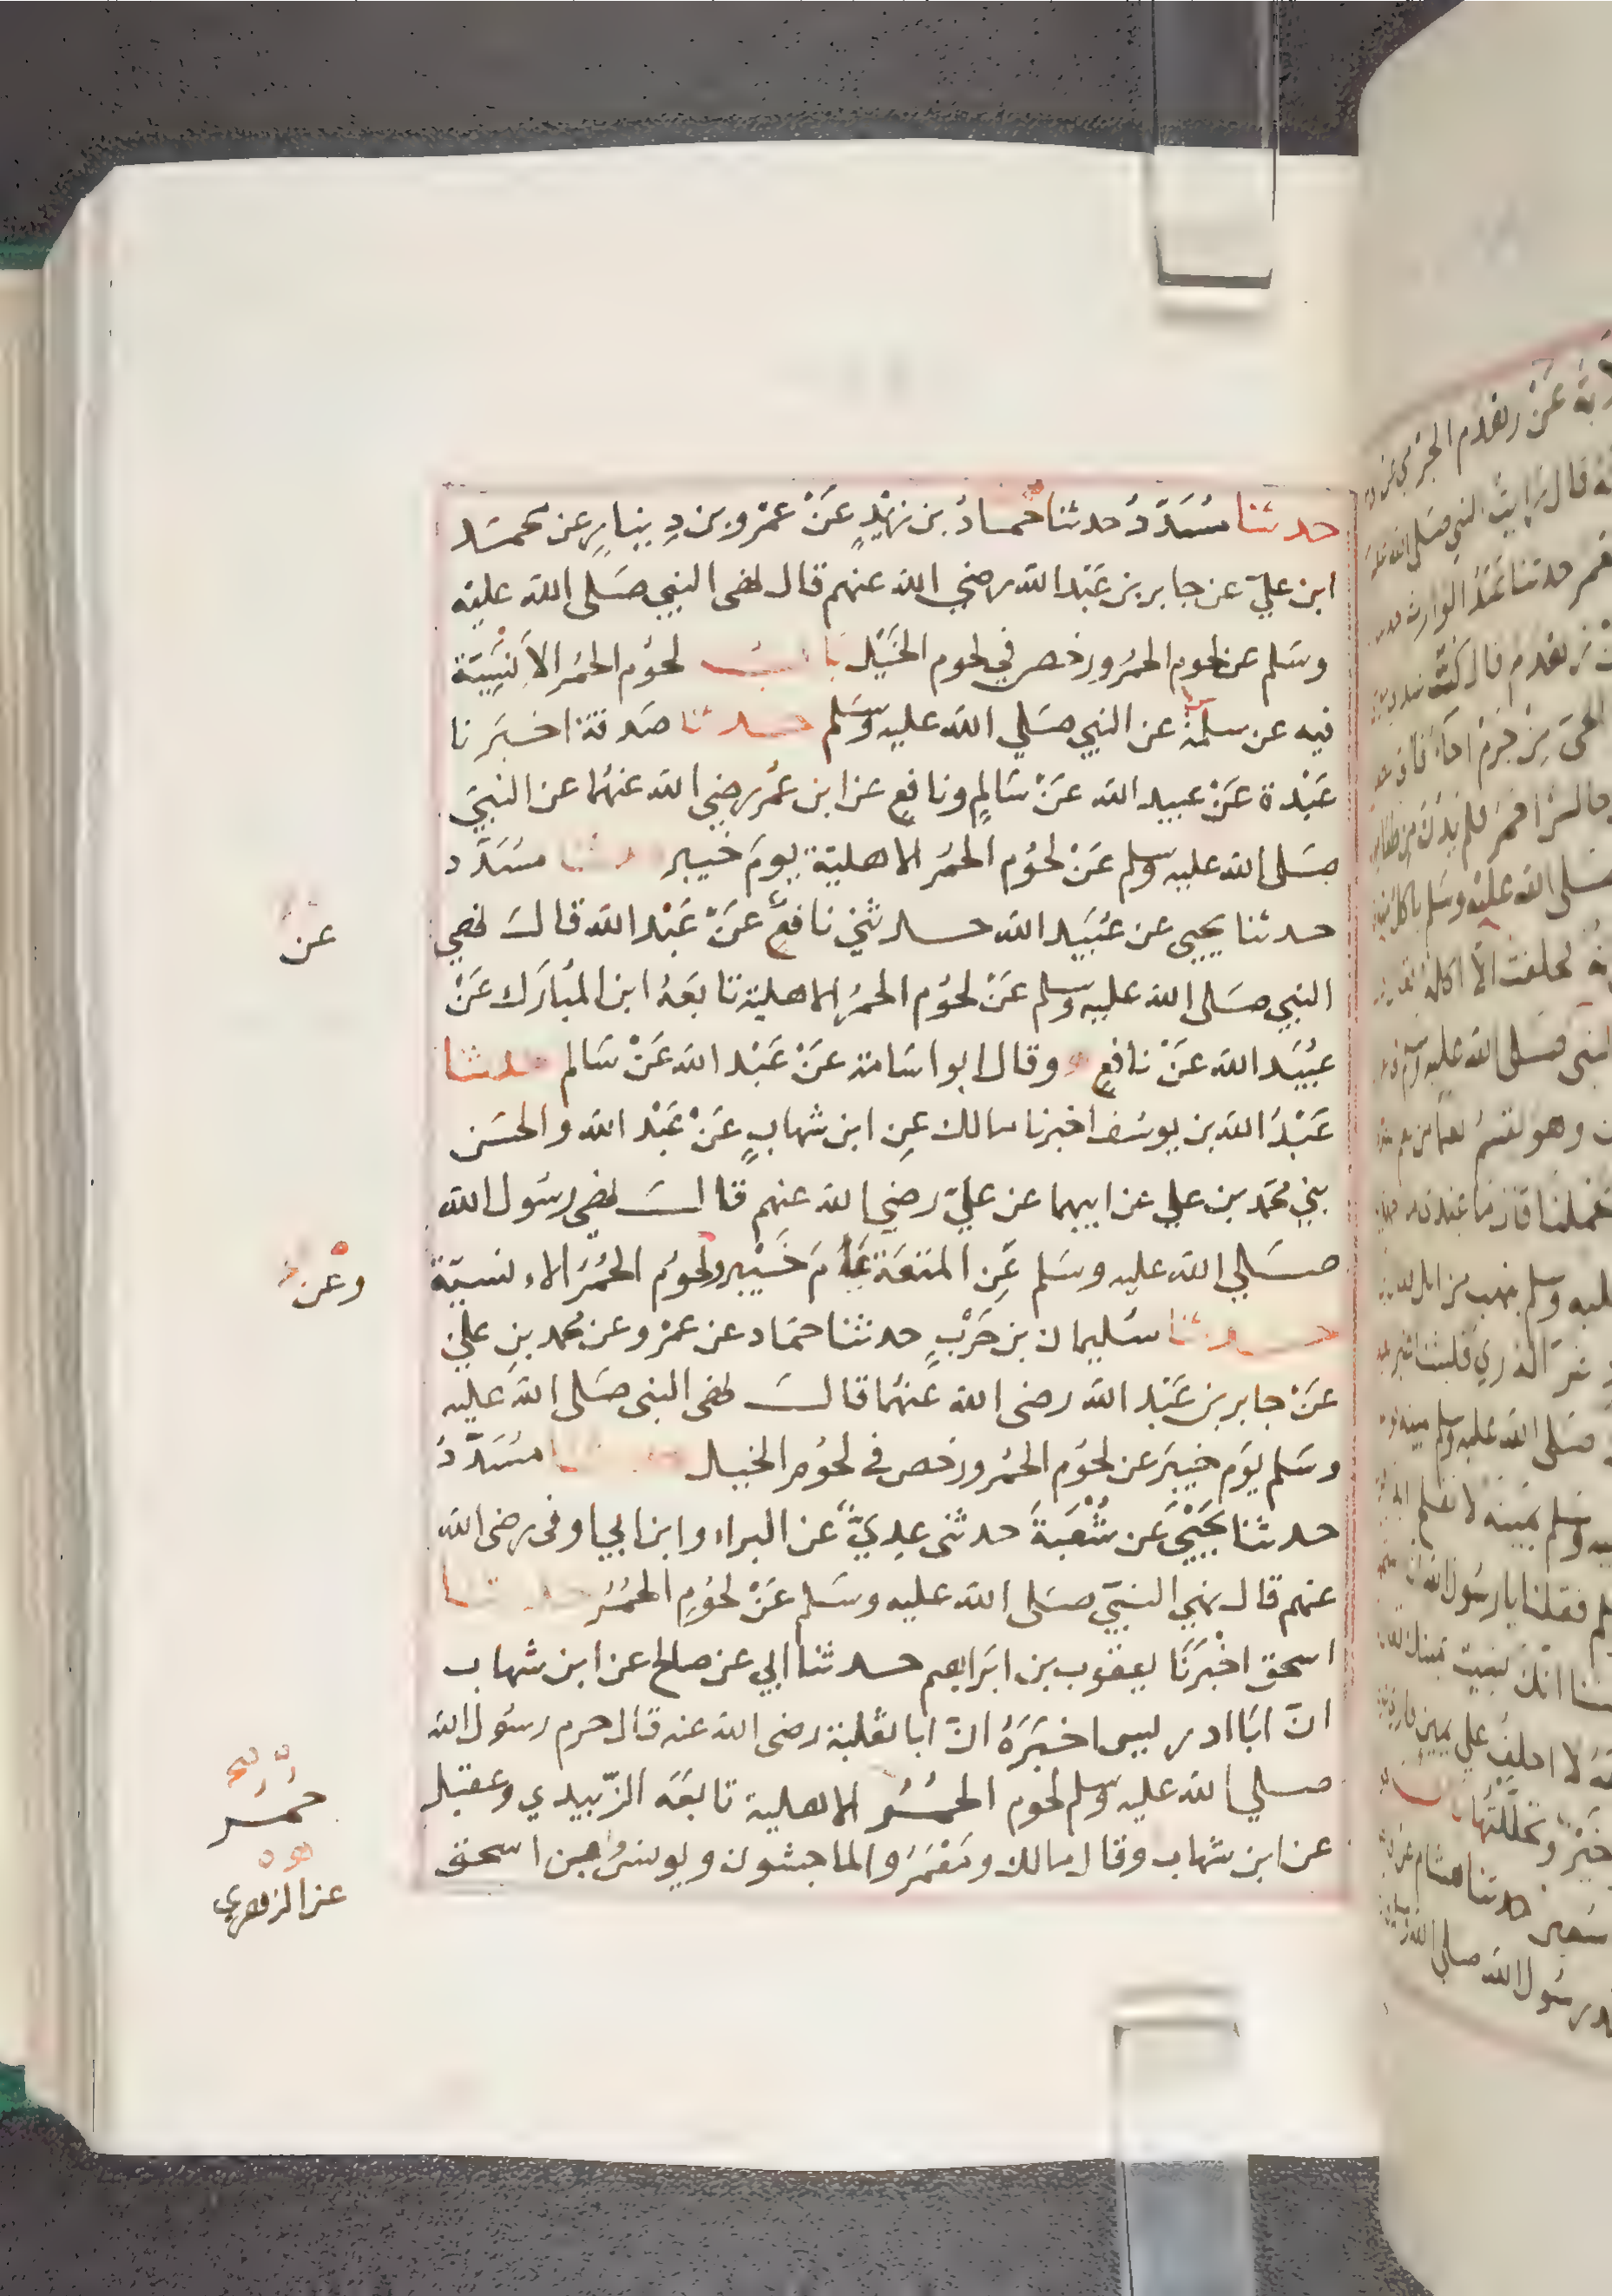 حدثنا مُسَدَّدٌ حدثنا حمادُ بن زيْدٍ عَنْ عمْرو بن دِينارٍ عن محمَّد
ابن عليّ عن جابر بن عَبْد الله رضي الله عنهم قال نهى النبي صَلى الله عليْه
وسَلم عن لحوم الحمُر ورخص في لحوم الخَيْل بَابُ لحُوُم الحمُر الأَنْسِيَّة
فيه عن سلمة عن النبي صَلي الله عليه وسَلم حدثنا صَدقة اخبَرنا
عَبْدة عَنْ عبيد الله عَنْ سَالمٍ ونافعٍ عن ابن عُمَر رضي الله عنهُما عن النبيّ
صَلى الله عليه وسلم عَنْ لحُوُم الحمُر الاهليّة يومَ خيبر حدثنا مسَدَّد
حدثنا يحيى عن عُبَيد الله حدثني نافعٌ عَنْ عَبْد الله قال نهى
النبي صَلى الله عليه وسلم عَنْ لحُوُم الحمُر الاهلية تابعَهُ ابن المُبارَك عَنْ
عبُيَد الله عَنْ نافعٍ وقال ابو اسَامة عَنْ عَبْد الله عَنْ سَالم حدثنا
عَبْدُ الله بن يوسُف اخبرنا مالك عنِ ابن شهابٍ عَنْ عَبْد الله والحسَن
بني محمّد بن علي عن ابيهما عن عليّ رضي الله عنهم قال نهى رسُول الله
صَلي الله عليه وسَلم عَنِ المتعَة عَامَ خَيْبر ولحُوُم الحُمُر الانسيّة
حدثنا سُليمان بن حَرْبٍ حدثنا حمَاد عن عمْرو عن محمد بنِ عليّ
عَنْ جابر بن عَبْد الله رضى الله عنهُما قال نهى النبى صَلى الله عليه
وسَلم يوَم خيبرَ عن لحُوُم الحمُر ورخص فى لحُوُم الخيل حدثنا مسُدَّدُ
حدثنا يَحْيَى عَن شُعْبَةَ حدثنى عديٌّ عن البراء وابن ابي اوفى رضى الله
عنهم قال نهي النبيّ صَلى الله عليه وسَلم عَنْ لحُوُمِ الحُمُرِ حدثنا
اسحق اخْبَرنَا يعقوب بن ابرَاهيم حدثنا ابي عن صالح عن ابن شهاب
انّ ابَا ادريس اخبَرَهُ انّ ابا ثعْلبة رضى الله عنه قال حرم رسُول الله
صلي الله عليه وسلم لحوم الحُمُر الاهلية تابعَه الزّبيدي وعقيل
عن ابن شهاب وقال مالك ومَعْمَرُ والماجشون ويونسُ وابن اسحق
عن
وعن
حمر
عن الزهري